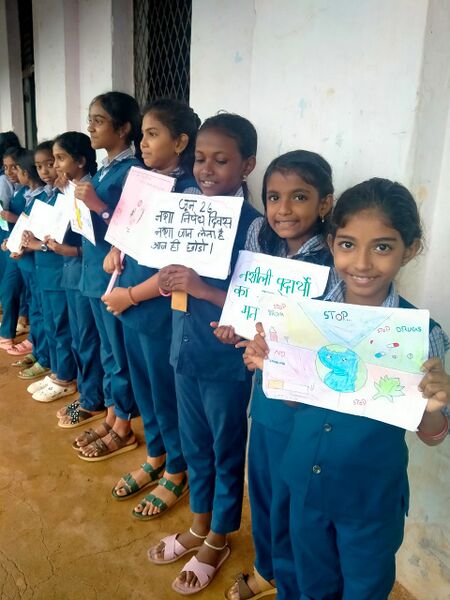 जून 26
नशा निषेध दिवस
नशा जान लेता है
आज ही छोडो।
नशीली पदार्थों
का
मत
STOP..
STOP DRUGS
STOP